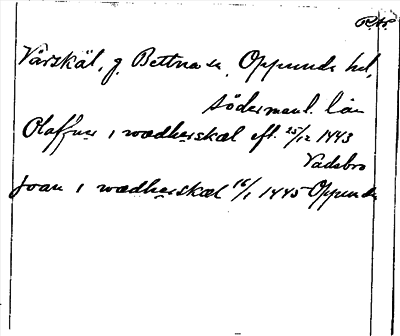 Vårskäl, g. Bettna sn, Oppunda hd,
Södermanl. län
Olaffuer i wædherskæl eft. 25/12 1443
Vadsbro
Joan i wædherskæl 16/1 1445 Oppunda